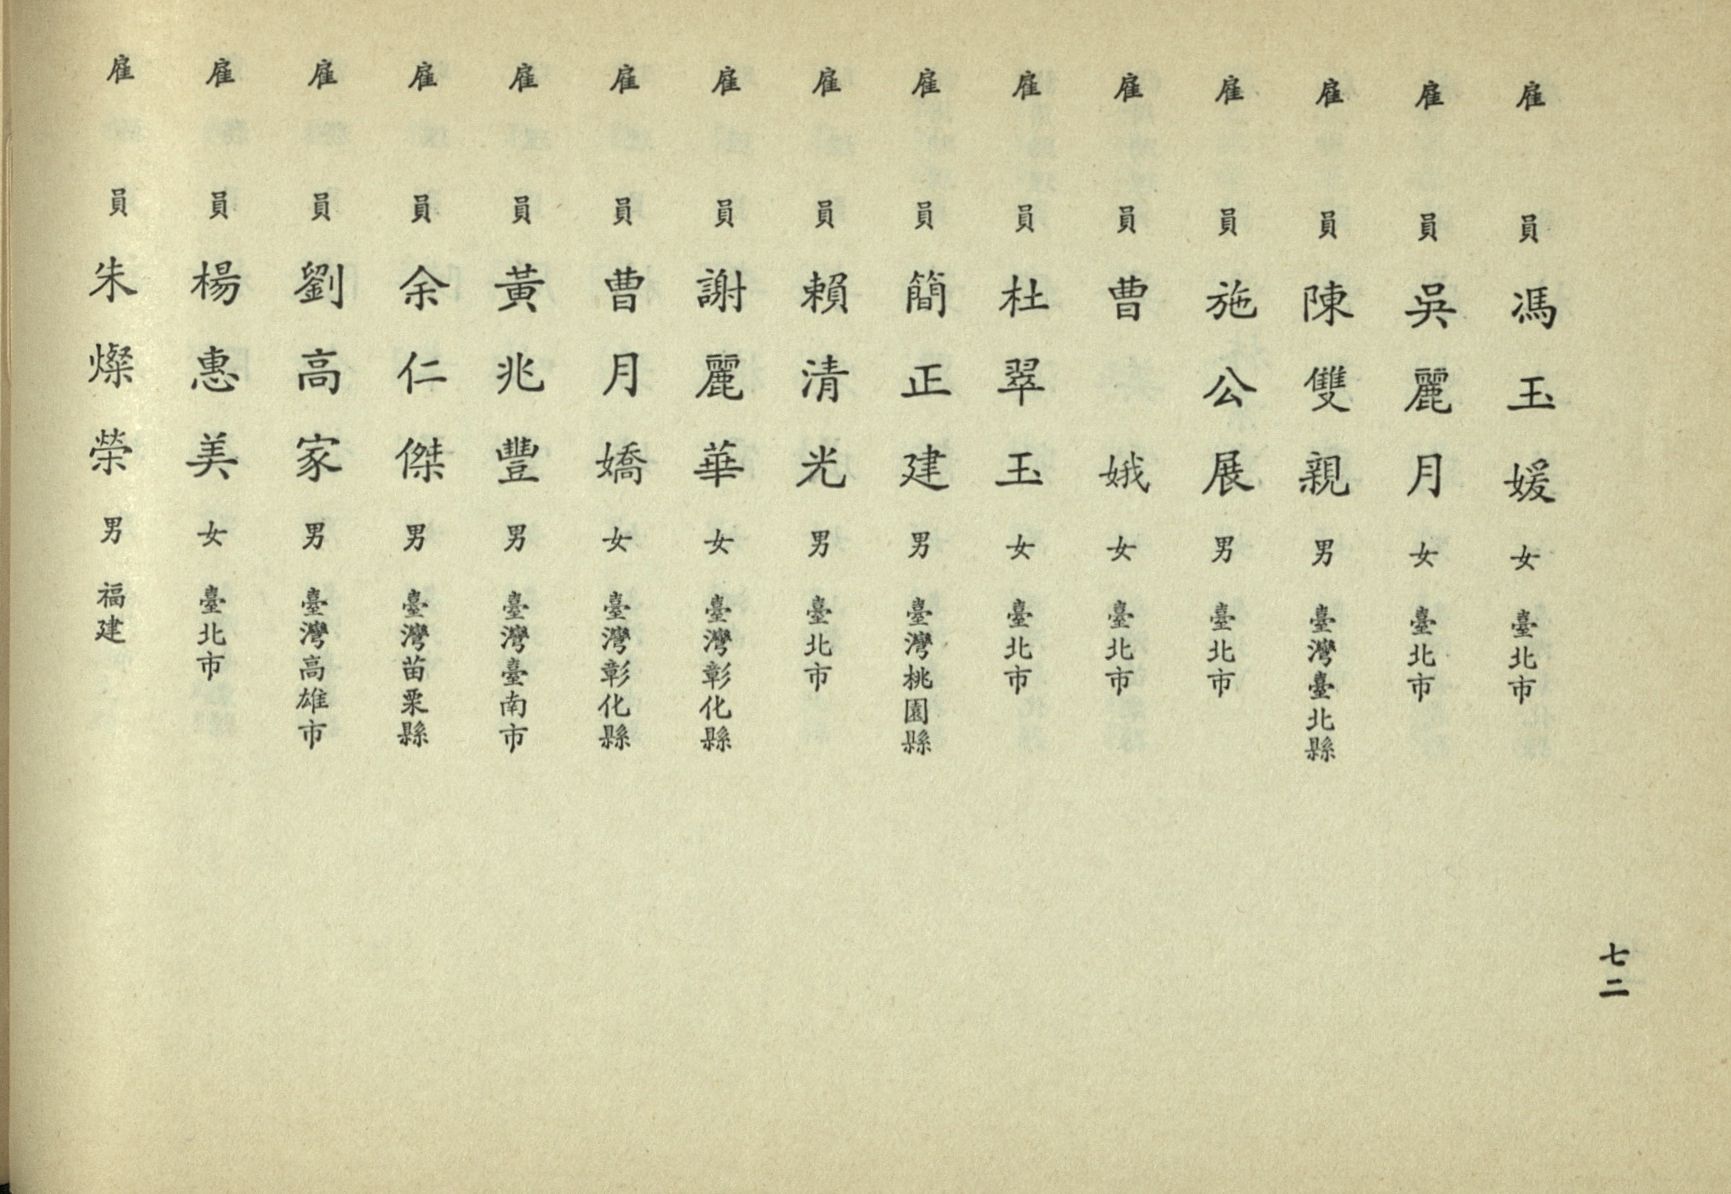 雇員馮玉媛女臺北市
雇員吳麗月女臺北市
雇員陳雙親男臺灣臺北縣
雇員施公展男臺北市
雇員曹娥女臺北市
雇員杜翠玉女臺北市
雇員簡正建男臺灣桃園縣
雇員賴清光男臺北市
雇員謝麗華女臺灣彰化縣
雇員曹月嬌女臺灣彰化縣
雇員黃兆豐男臺灣臺南市
雇員余仁傑男臺灣苗栗縣
雇員劉高家男臺灣高雄市
雇員楊惠美女臺北市
雇員朱燦榮男福建
七二